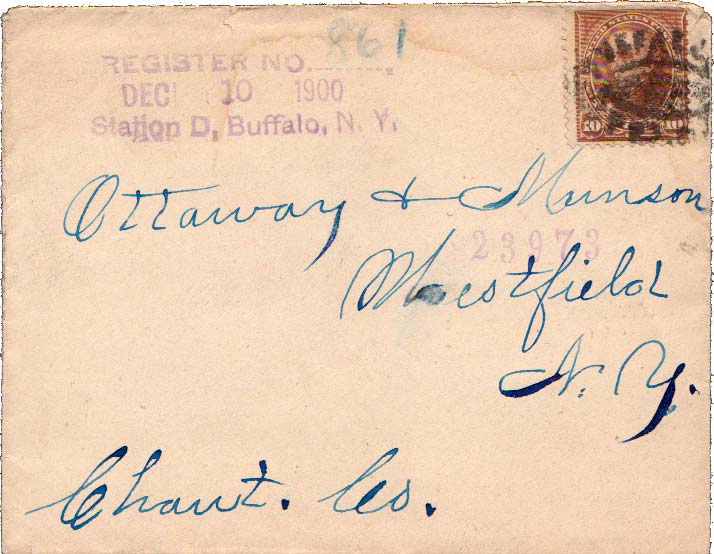 861
REGISTER NO.
DEC 10 1900
Station D, Buffalo, N. Y.
10 10
Ottaway & Munson
23973
Westfield
N. Y.
Chaut. Co.